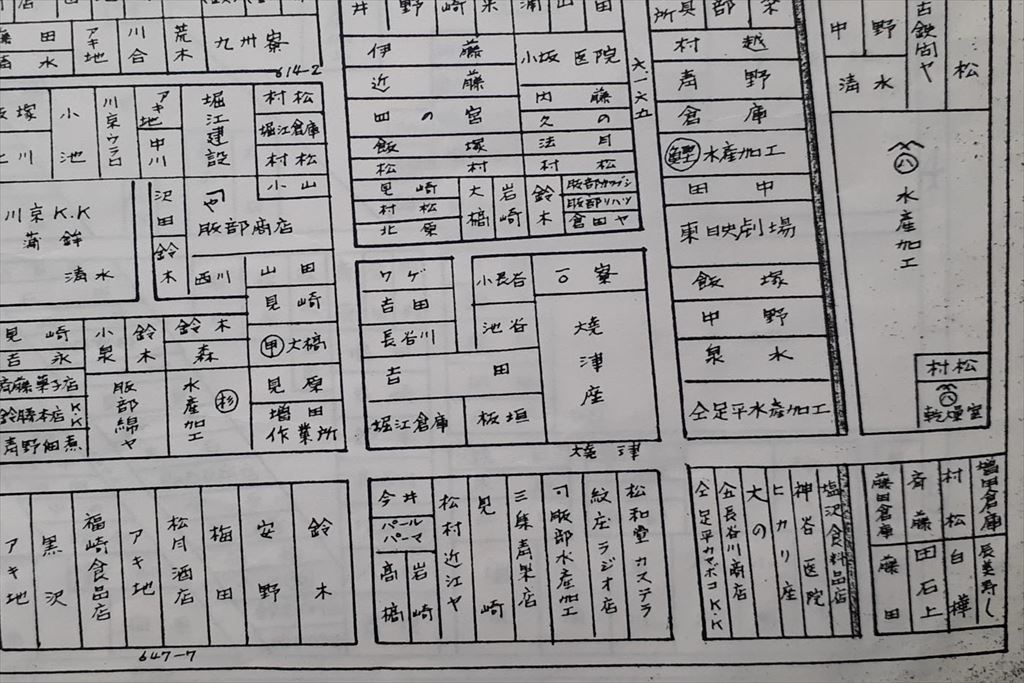 九州寮
川合
荒木
アキ地
清水
614-2
小池
川京ウラロ
アキ地
中川
堀江建設
村松
堀江倉庫
村松
小山
川京K.K
蒲鉾
清水
沢田
鈴木
服部商店
西川
山田
見崎
甲大橋
見原
増田作業所
見崎
吉永
小泉
鈴木
鈴木
森
斎藤菓子店
鈴勝本店K.K
青野佃煮
服部綿ヤ
水産加工
杉
伊藤
近藤
四の宮
飯塚
松村
見崎
村松
北原
大橋
岩崎
小坂医院
内藤
久の
法月
村松
鈴木
服部カツブシ
服部リハツ
倉田ヤ
六.一六五
ワゲ
吉田
長谷川
吉田
堀江倉庫
小長谷
池谷
板垣
寮
焼津座
焼津
村越
青野
倉庫
鰹水産加工
田中
東映劇場
飯塚
中野
泉水
仝足平水産加工
中野
清水
古鉄屑ヤ
松
八水産加工
村松
八乾燥室
アキ地
黒沢
福崎食品店
アキ地
松月酒店
梅田
安野
鈴木
647-7
今井
パールパーマ
高橋
岩崎
松村近江ヤ
見崎
三条青果店
服部水産加工
紋庄ラジオ店
松和堂カステラ
仝足平カマボコK.K
長谷川商店
大の
ヒカリ座
神谷医院
塩沢食料品店
藤田倉庫
藤田
斉藤
田石上
村松
白樺
増田倉庫
辰美寿し